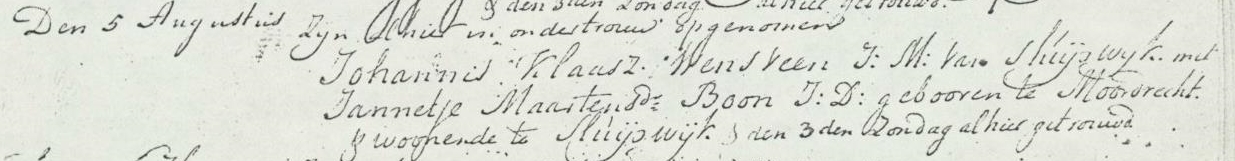 § den 3den Zondag alhier getrouwd.
Den 5 Augustus Zijn Alhier in ondertrouw opgenomen
Johannis Klaasz. Wensveen J: M: van Sluijpwyk. met
Jannetje Maartensdr. Boon J: D: gebooren te Moordrecht.
§ woonende te Sluijpwijk § den 3den Zondag alhier getrouwd